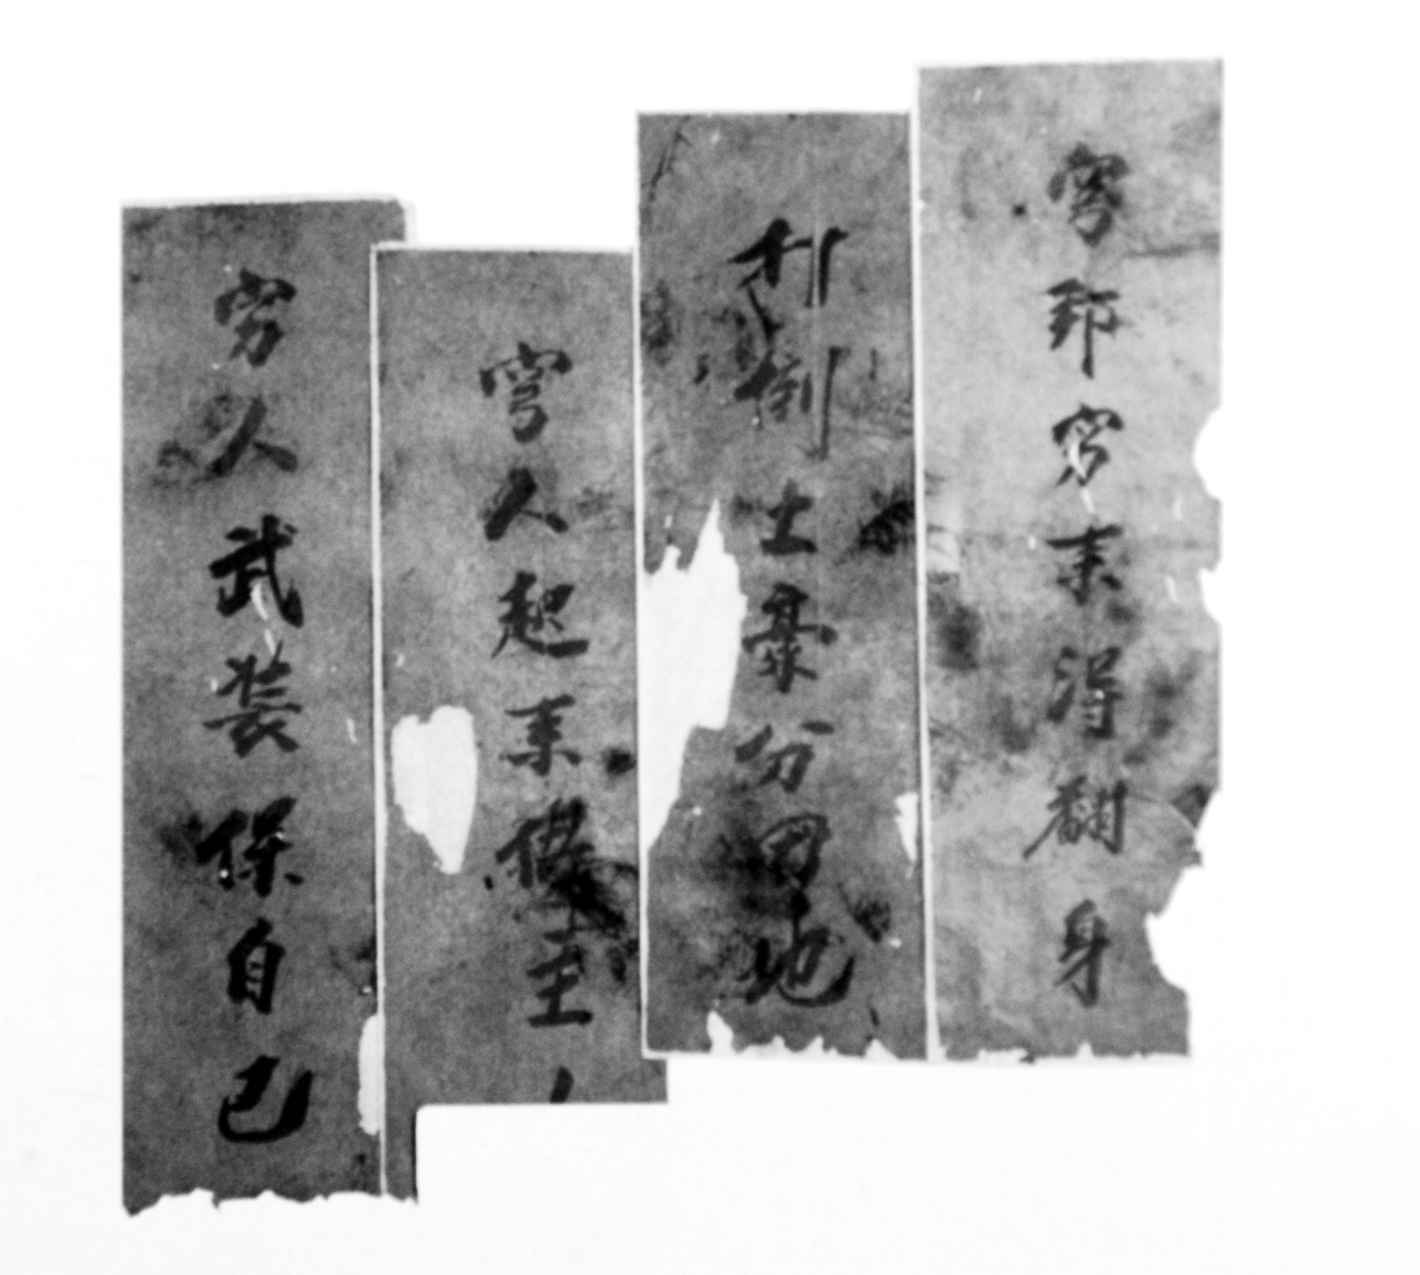 穷邦穷来得翻身
打倒土豪分田地
穷人起来做主
穷人武装保自己